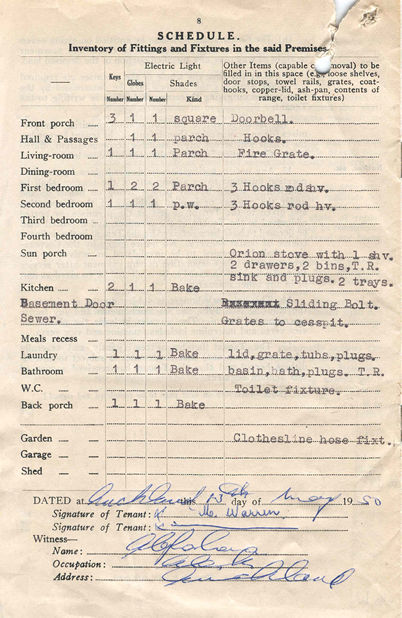 8
SCHEDULE.
Inventory of Fittings and Fixtures in the said Premises
Keys Electric Light Other Items (capable moval) to be
filled in in this space (e.g. loose shelves,
Globes Shades door stops, towel rails, grates, coat-
hooks, copper-lid, ash-pan, contents of
Number Number Number Kind range, toilet fixtures)
Front porch 3 1 1 square Doorbell.
Hall & Passages 1 1 parch Hooks.
Living-room 1 1 1 Parch Fire Grate.
Dining-room
First bedroom 1 2 2 Parch 3 Hooks
Second bedroom 1 1 1 p.w. 3 Hooks rod hv.
Third bedroom
Fourth bedroom
Sun porch Orion stove with 1 shv.
2 drawers, 2 bins, T.R.
sink and plugs. 2 trays.
Kitchen 2 1 1 Bake
Basement Door Sliding Bolt.
Sewer. Grates to cesspit.
Meals recess
Laundry 1 1 1 Bake lid, grate, tubs, plugs.
Bathroom 1 1 1 Bake basin, bath, plugs. T.R.
W.C. Toilet fixture.
Back porch 1 1 1 Bake
Garden Clothesline hose fixt.
Garage
Shed
DATED at Auckland this 13th day of May 1950
Signature of Tenant: Warren
Signature of Tenant:
Witness—
Name:
Occupation:
Address: Auckland